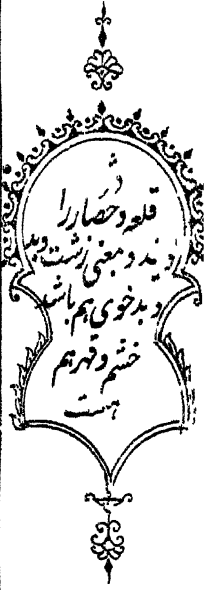 دژ
قلعه و حصار را
گویند و بمعنی زشت و بد
و بدخوی هم باشد
خشم و قهر هم
هست